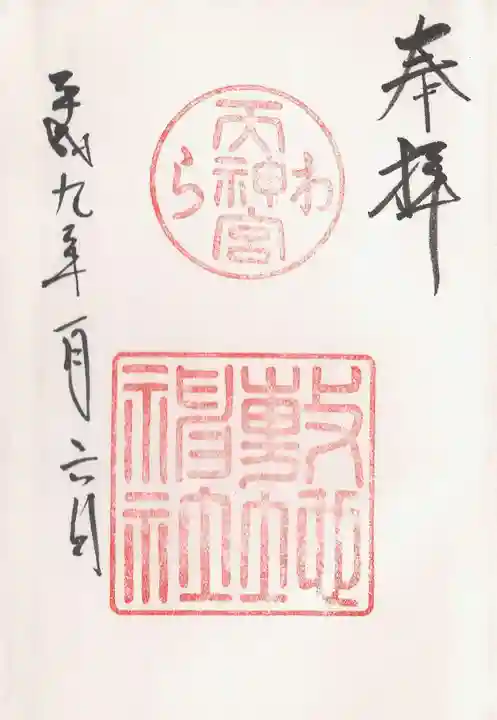 奉拝
わら
天神宮
敷地
神社
平成九年一月六日